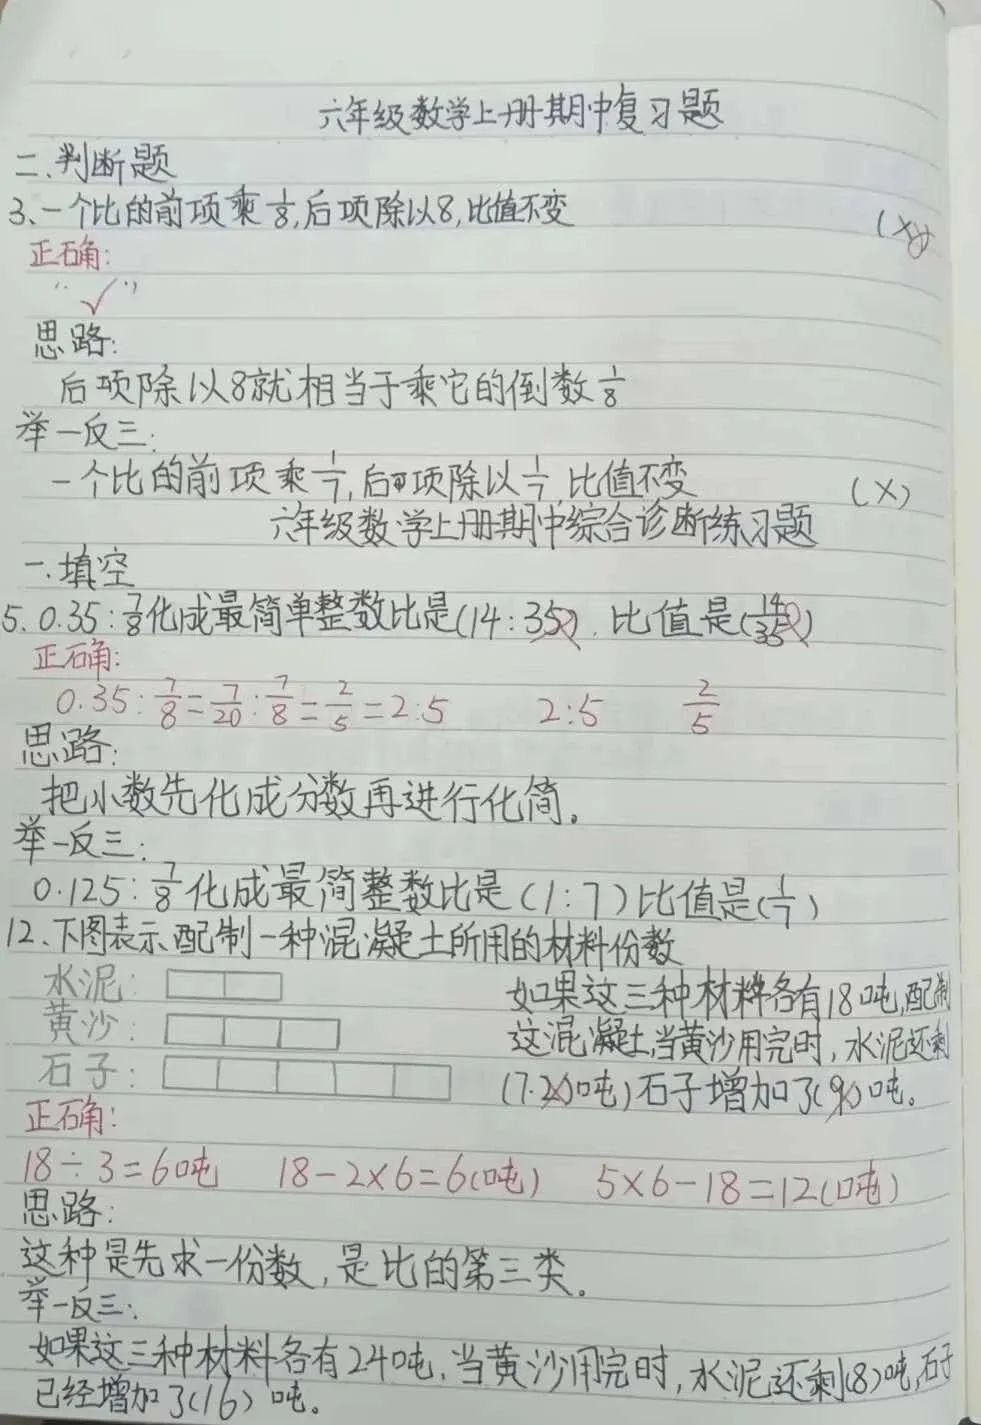 六年级数学上册期中复习题
二、判断题
3、一个比的前项乘1/8,后项除以8,比值不变 (×)
正确:
“√”
思路:
后项除以8就相当于乘它的倒数1/8
举一反三:
一个比的前项乘1/7,后项除以1/7,比值不变 (×)
六年级数学上册期中综合诊断练习题
一、填空
5、0.35:7/8化成最简单整数比是(14:35),比值是(14/35)
正确:
0.35:7/8=7/20:7/8=2/5=2:5 2:5 2/5
思路:
把小数先化成分数再进行化简。
举一反三:
0.125:7/8化成最简整数比是(1:7)比值是(1/7)
12、下图表示配制一种混凝土所用的材料份数
水泥:
黄沙:
石子:
如果这三种材料各有18吨,配制
这混凝土,当黄沙用完时,水泥还剩
(7.2)吨)石子增加了(9)吨。
正确:
18÷3=6吨 18-2×6=6(吨) 5×6-18=12(吨)
思路:
这种是先求一份数,是比的第三类。
举一反三:
如果这三种材料各有24吨,当黄沙用完时,水泥还剩(8)吨,石子
已经增加了(16)吨。